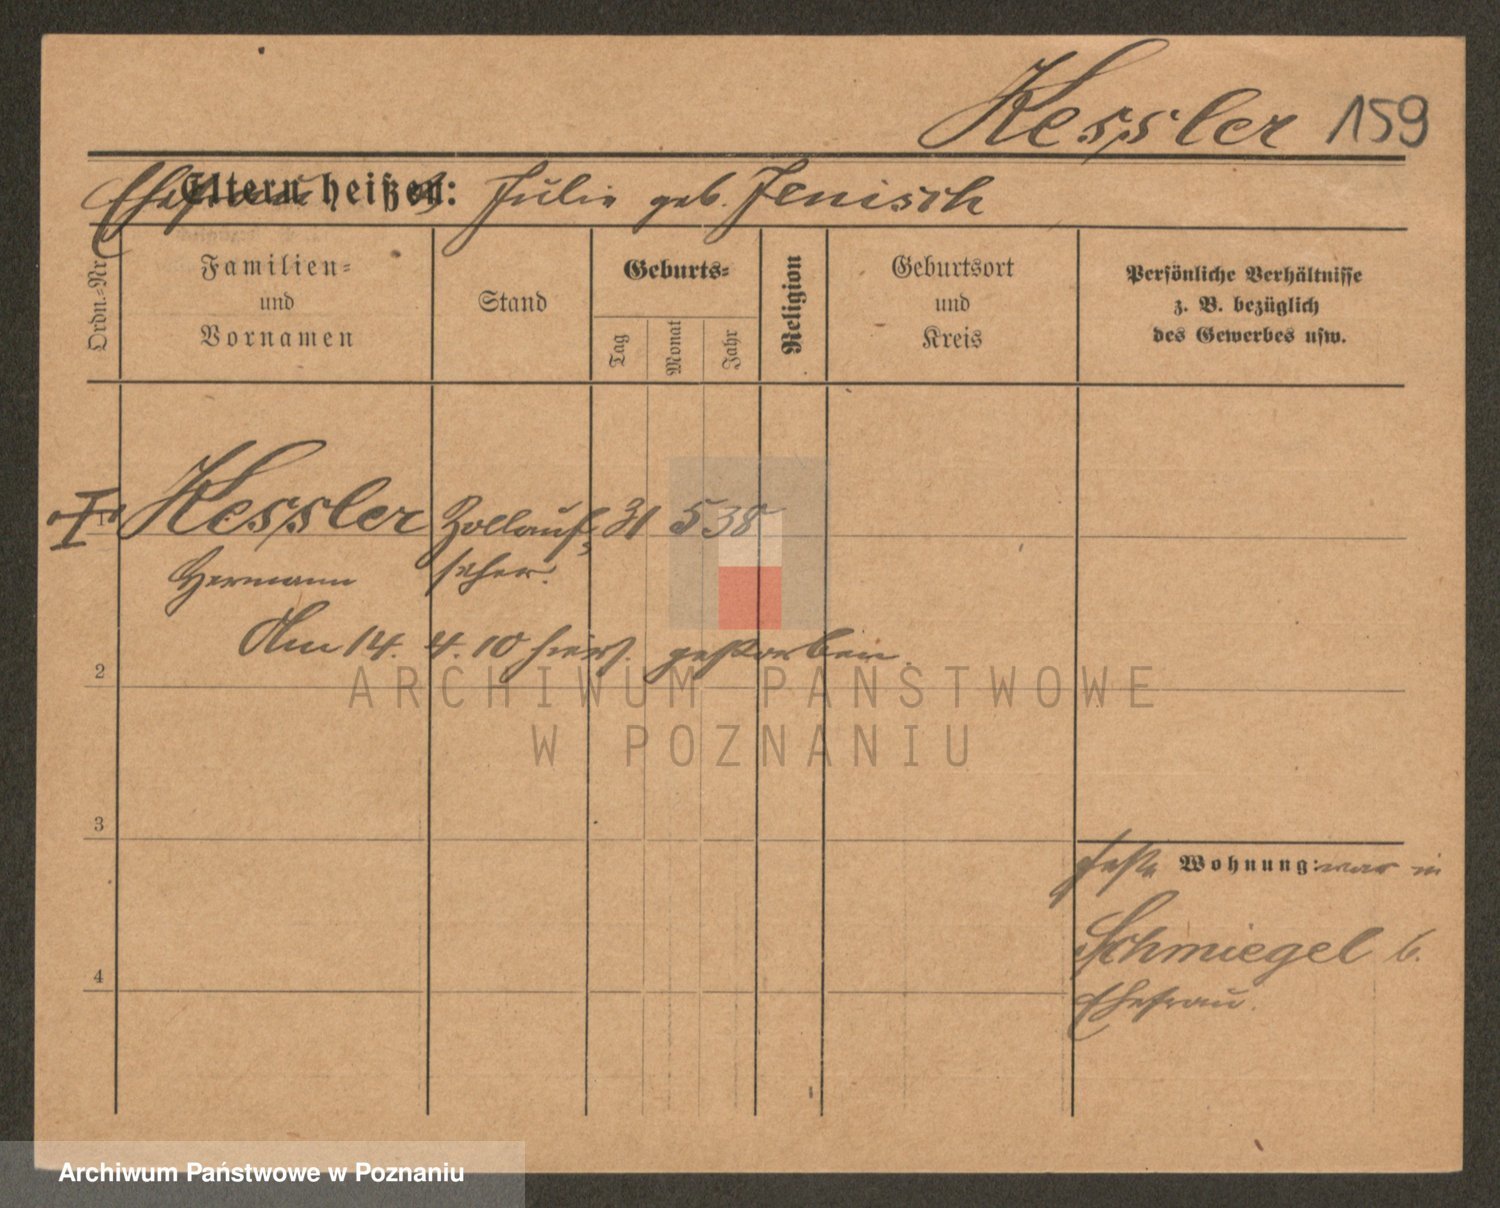 Kessler 159
Ehefrau Eltern heißen: Julie geb. Jenisch
Ordn.=Nr.
Familien=
und
Vornamen
Stand
Geburts=
Tag
Monat
Jahr
Religion
Geburtsort
und
Kreis
Persönliche Verhältnisse
z. B. bezüglich
des Gewerbes usw.
1 Kessler Zollauf= 31 5 38
Hermann seher.
Am 14. 4. 10 hiers. gestorben.
2
ARCHIWUM PAŃSTWOWE
W POZNANIU
3
feste Wohnung: war in
Schmiegel b.
4
Ehefrau.
Archiwum Państwowe w Poznaniu